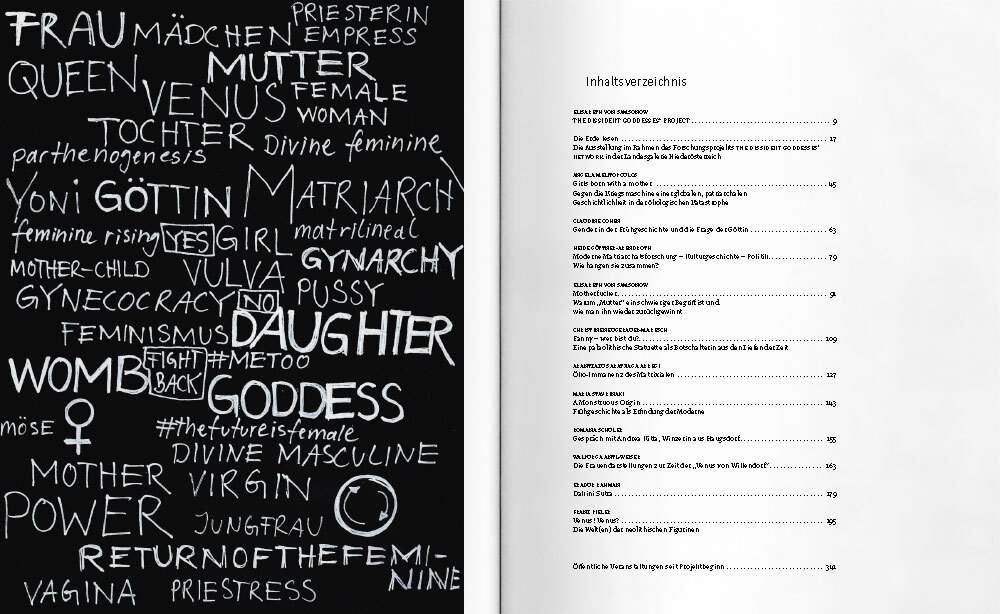 FRAU MÄDCHEN PRIESTERIN
EMPRESS
QUEEN MUTTER
VENUS FEMALE
WOMAN
TOCHTER Divine feminine
parthenogenesis
Yoni GÖTTIN MATRIARCH
feminine rising YES GIRL matrilineal
MOTHER-CHILD VULVA GYNARCHY
GYNECOCRACY NO PUSSY
FEMINISMUS DAUGHTER
WOMB FIGHT #METOO
BACK GODDESS
möse ♀ #thefutureisfemale
DIVINE MASCULINE
MOTHER VIRGIN
POWER JUNGFRAU
RETURNOFTHEFEMI-
NINE
VAGINA PRIESTRESS
Inhaltsverzeichnis
ELISABETH VON SAMSONOW
THE DISSIDENT GODDESSES' PROJECT 9
Die Erde lesen 17
Die Ausstellung im Rahmen des Forschungsprojekts THE DISSIDENT GODDESSES'
NETWORK in der Landesgalerie Niederösterreich
ANGELA MELITOPOULOS
Girls born with a mother 45
Gegen die Kriegsmaschine einer globalen, patriarchalen
Geschichtlichkeit in der ökologischen Katastrophe
CLAUDINE COHEN
Gender in der Frühgeschichte und die Frage der Göttin 63
HEIDE GÖTTNER-ABENDROTH
Moderne Matriarchatsforschung – Kulturgeschichte – Politik 79
Wie hängen sie zusammen?
ELISABETH VON SAMSONOW
Motherfucker 91
Warum „Mutter“ ein schwieriger Begriff ist und
wie man ihn wieder zurückgewinnt
CHRISTINE NEUGEBAUER-MARESCH
Fanny – wer bist du? 109
Eine paläolithische Statuette als Botschafterin aus den Tiefen der Zeit
Öko-Immanenz des Matrixialen 127
A Monstruous Origin 143
Frühgeschichte als Erfindung der Moderne
ROMANA SCHULER
Gespräch mit Andrea Hitta, Winzerin aus Haugsdorf 155
WALPURGA ANTL-WEISER
Die Frauendarstellungen zur Zeit der „Venus von Willendorf“ 163
Dakini Sutra 179
FRANZ PIELER
Venus! Venus? 195
Die Welt(en) der neolithischen Figurinen
Öffentliche Veranstaltungen seit Projektbeginn 341